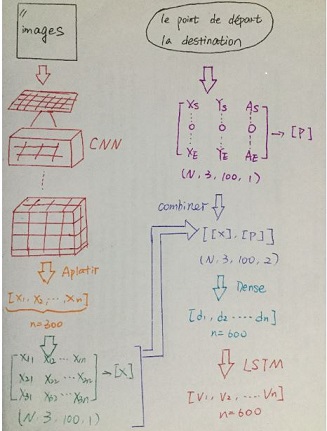 images
CNN
Aplatir
[x₁, x₂, ..., xₙ]
n=300
x₁₁ x₁₂ ... x₁ₙ
x₂₁ x₂₂ ... x₂ₙ
x₃₁ x₃₂ ... x₃ₙ
→ [X]
(N, 3, 100, 1)
le point de départ
la destination
Xs Ys As
0 0 0
XE YE AE
→ [P]
(N, 3, 100, 1)
combiner
[[X], [P]]
(N, 3, 100, 2)
Dense
[d₁, d₂ ---- dₙ]
n=600
LSTM
[V₁, V₂, ---- Vₙ]
n=600